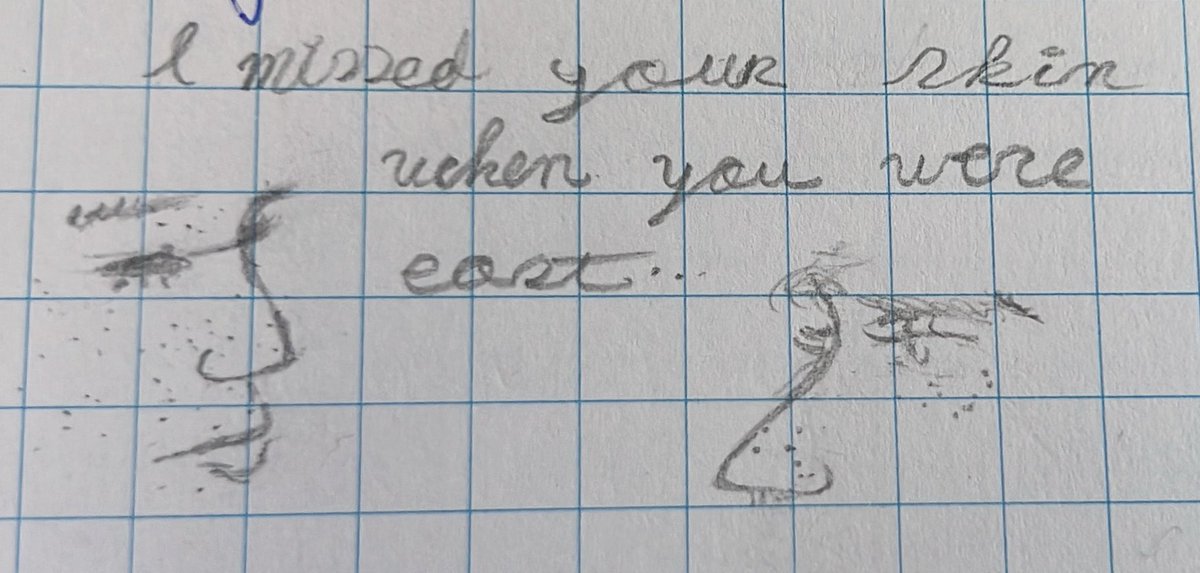 I missed your skin
when you were
east...